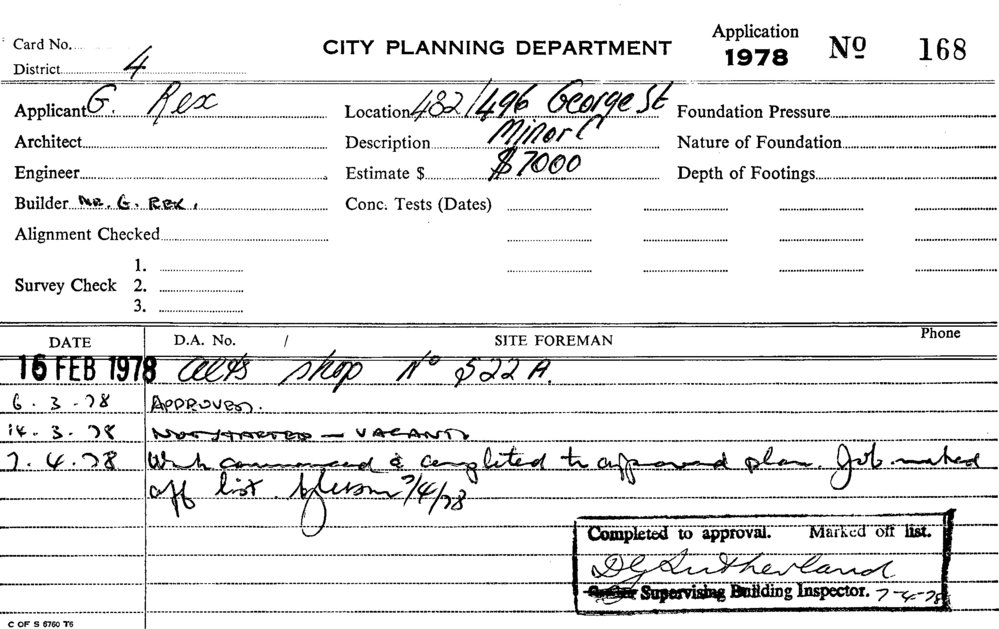 Card No.
CITY PLANNING DEPARTMENT
Application
1978 Nº 168
District 4
Applicant G. Rex
Location 482/496 George St
Foundation Pressure
Architect
Description Minor C
Nature of Foundation
Engineer
Estimate $ $7000
Depth of Footings
Builder MR. G. REX.
Conc. Tests (Dates)
Alignment Checked
Survey Check 1.
2.
3.
DATE D.A. No. / SITE FOREMAN Phone
16 FEB 1978 alts shop Nº S22A.
6.3.78 APPROVED.
14.3.78 NOT STARTED – VACANT
7.4.78 Work commenced & completed to approved plan. Job marked
off list. 7/4/78
Completed to approval. Marked off list.
DG Sutherland
Supervising Building Inspector. 7-4-78
C OF S 6760 T6